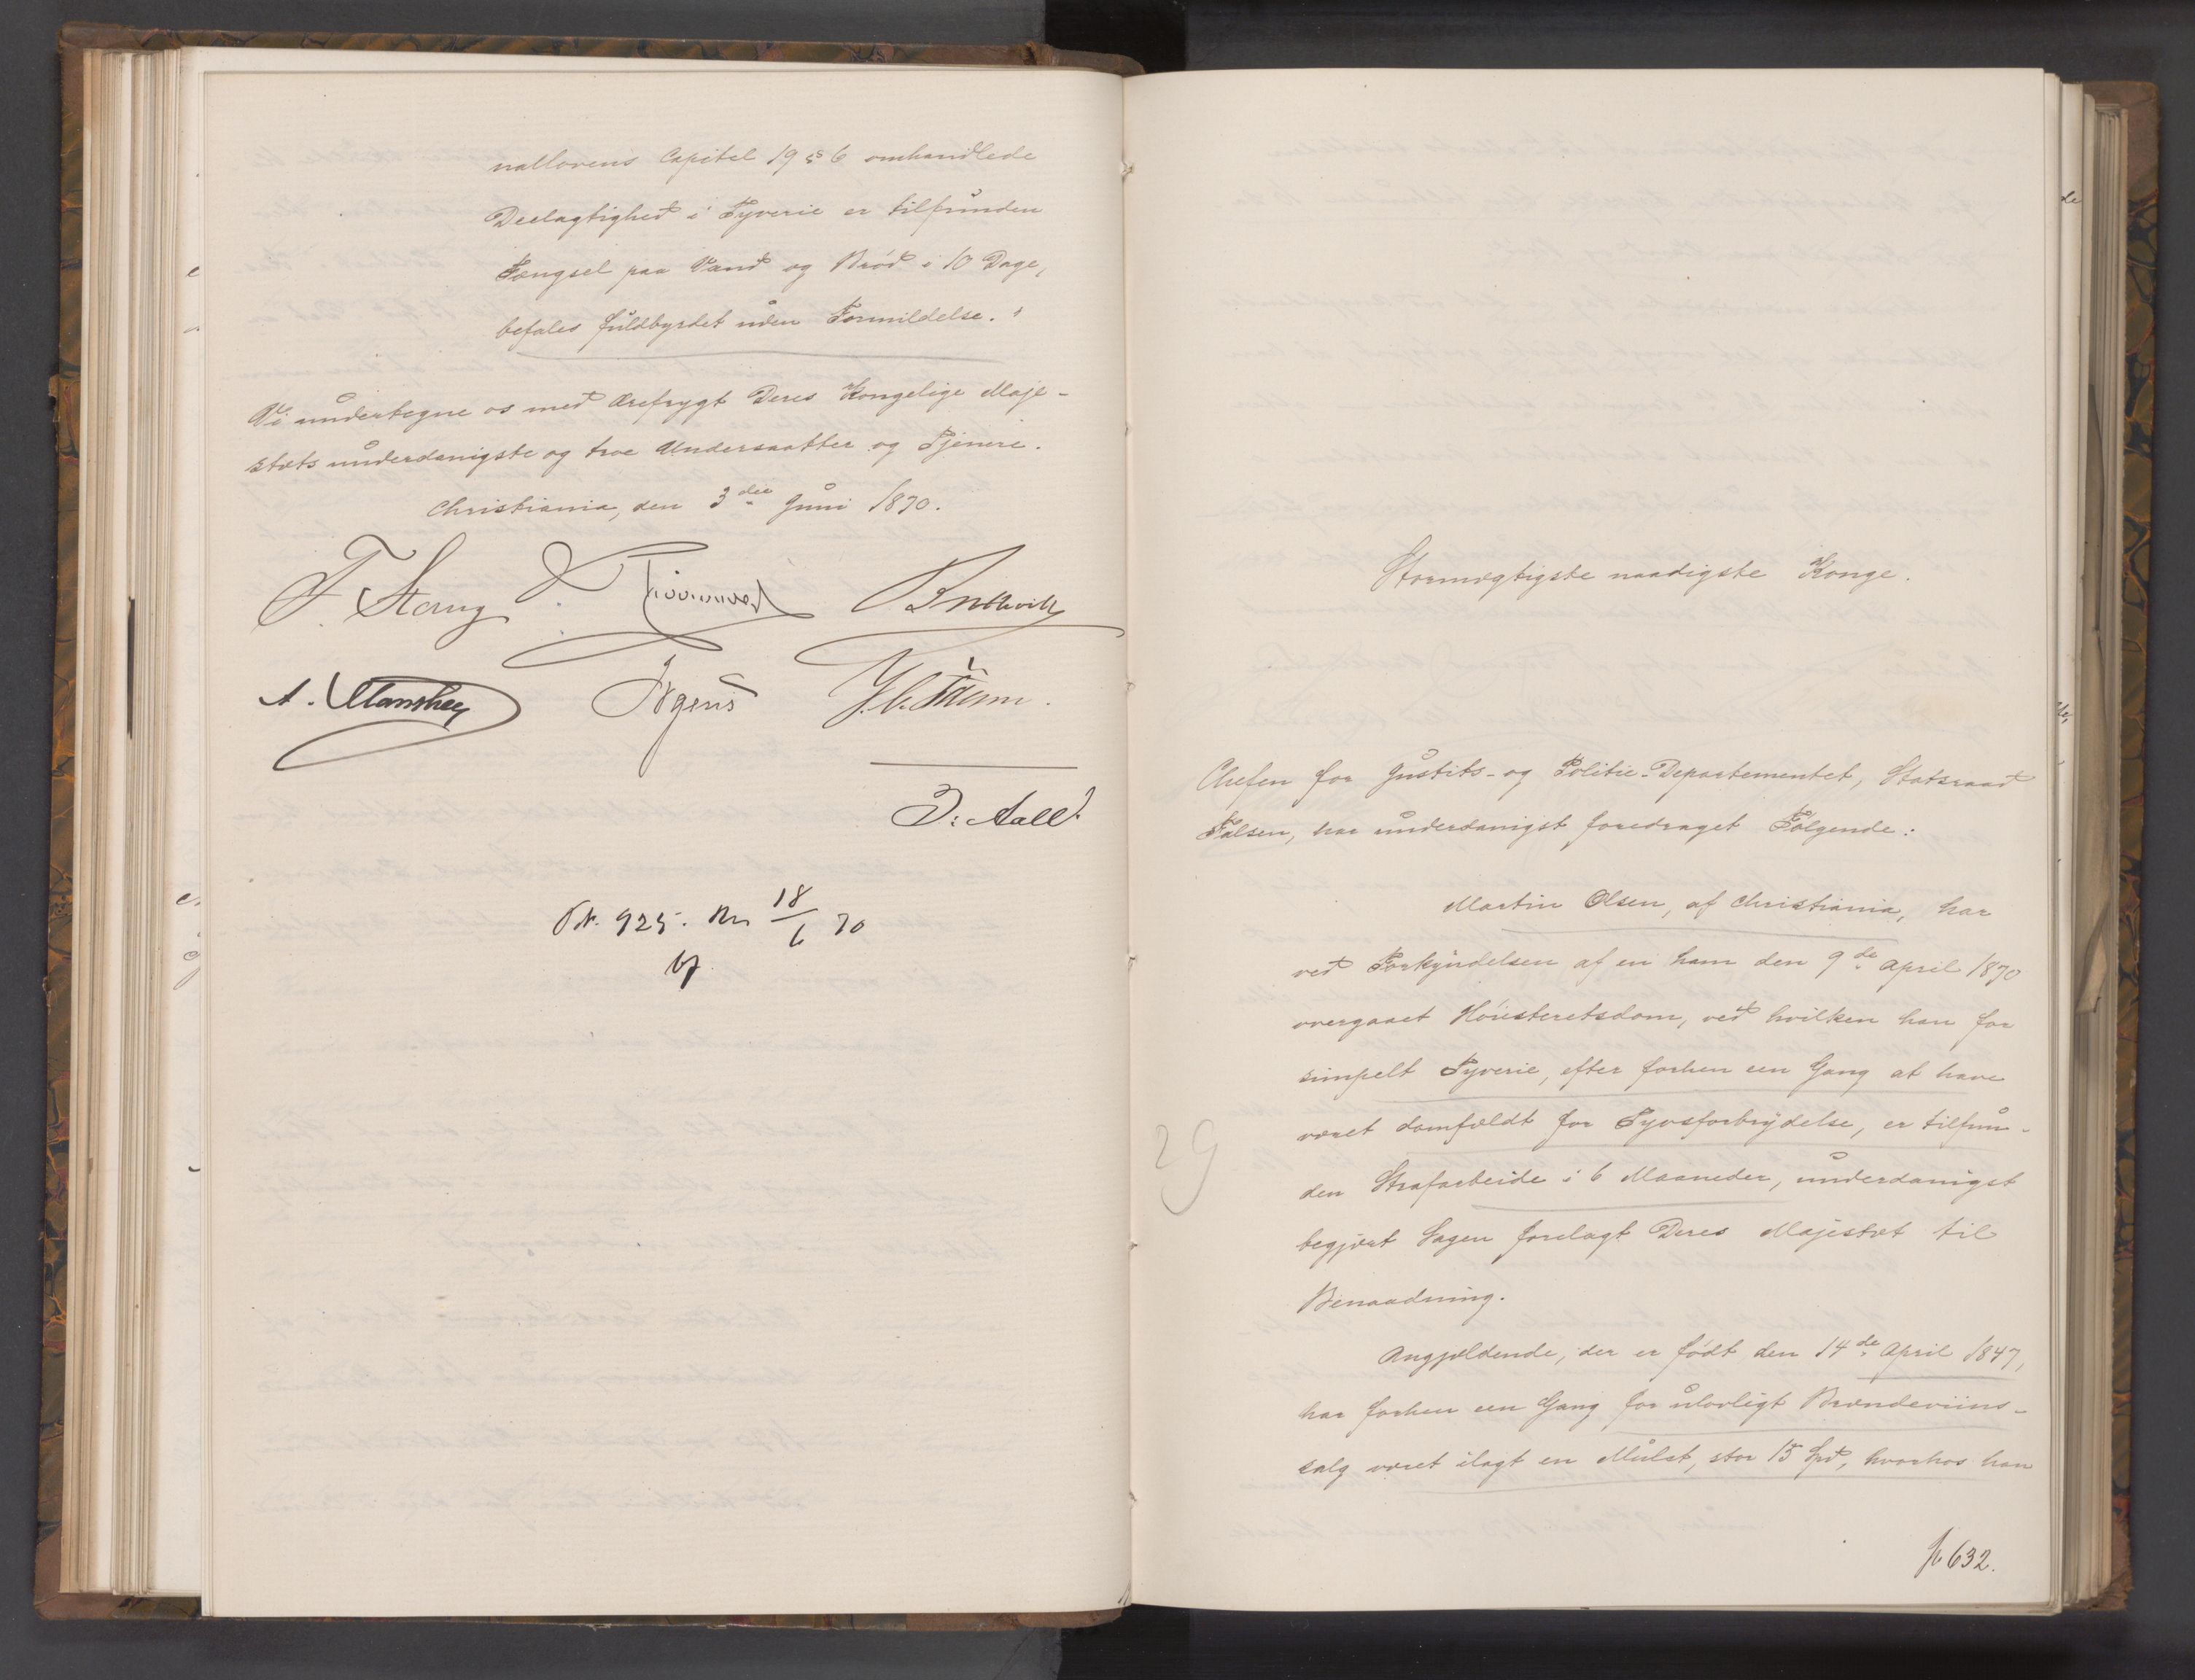 nallovens Capitel 19 § 6 omhandlede
Deelagtighed i Tyverie er tilfunden
Fængsel paa Vand og Brød i 10 Dage,
befales fuldbyrdet uden Formildelse.
Vi undertegne os med Ærefrygt Deres Kongelige Maje-
stæts underdanigste og troe Undersaatter og Tjenere.
Christiania, den 3die Juni 1870.
F. Stang
A. Manthey Irgens J. C. Thesen.
D: Aall
PN. 925. 18/6 70
Stormægtigste naadigste Konge.
Chefen for Justits- og Politie-Departementet, Statsraad
Falsen, har underdanigst foredraget Følgende:
Martin Olsen, af Christiania, har
ved Forkyndelsen af en ham den 9de April 1870
overgaaet Høiesteretsdom, ved hvilken han for
simpelt Tyverie, efter forhen een Gang at have
været domfældt for Tyvsforbrydelse, er tilfun-
den Strafarbeide i 6 Maaneder, underdanigst
29
begjært Sagen forelagt Deres Majestæt til
Benaadning.
Angjældende, der er født den 14de April 1847,
har forhen een Gang for ulovligt Brændeviins-
salg været ilagt en Mulct, stor 15 Spd, hvorhos han
p 632.